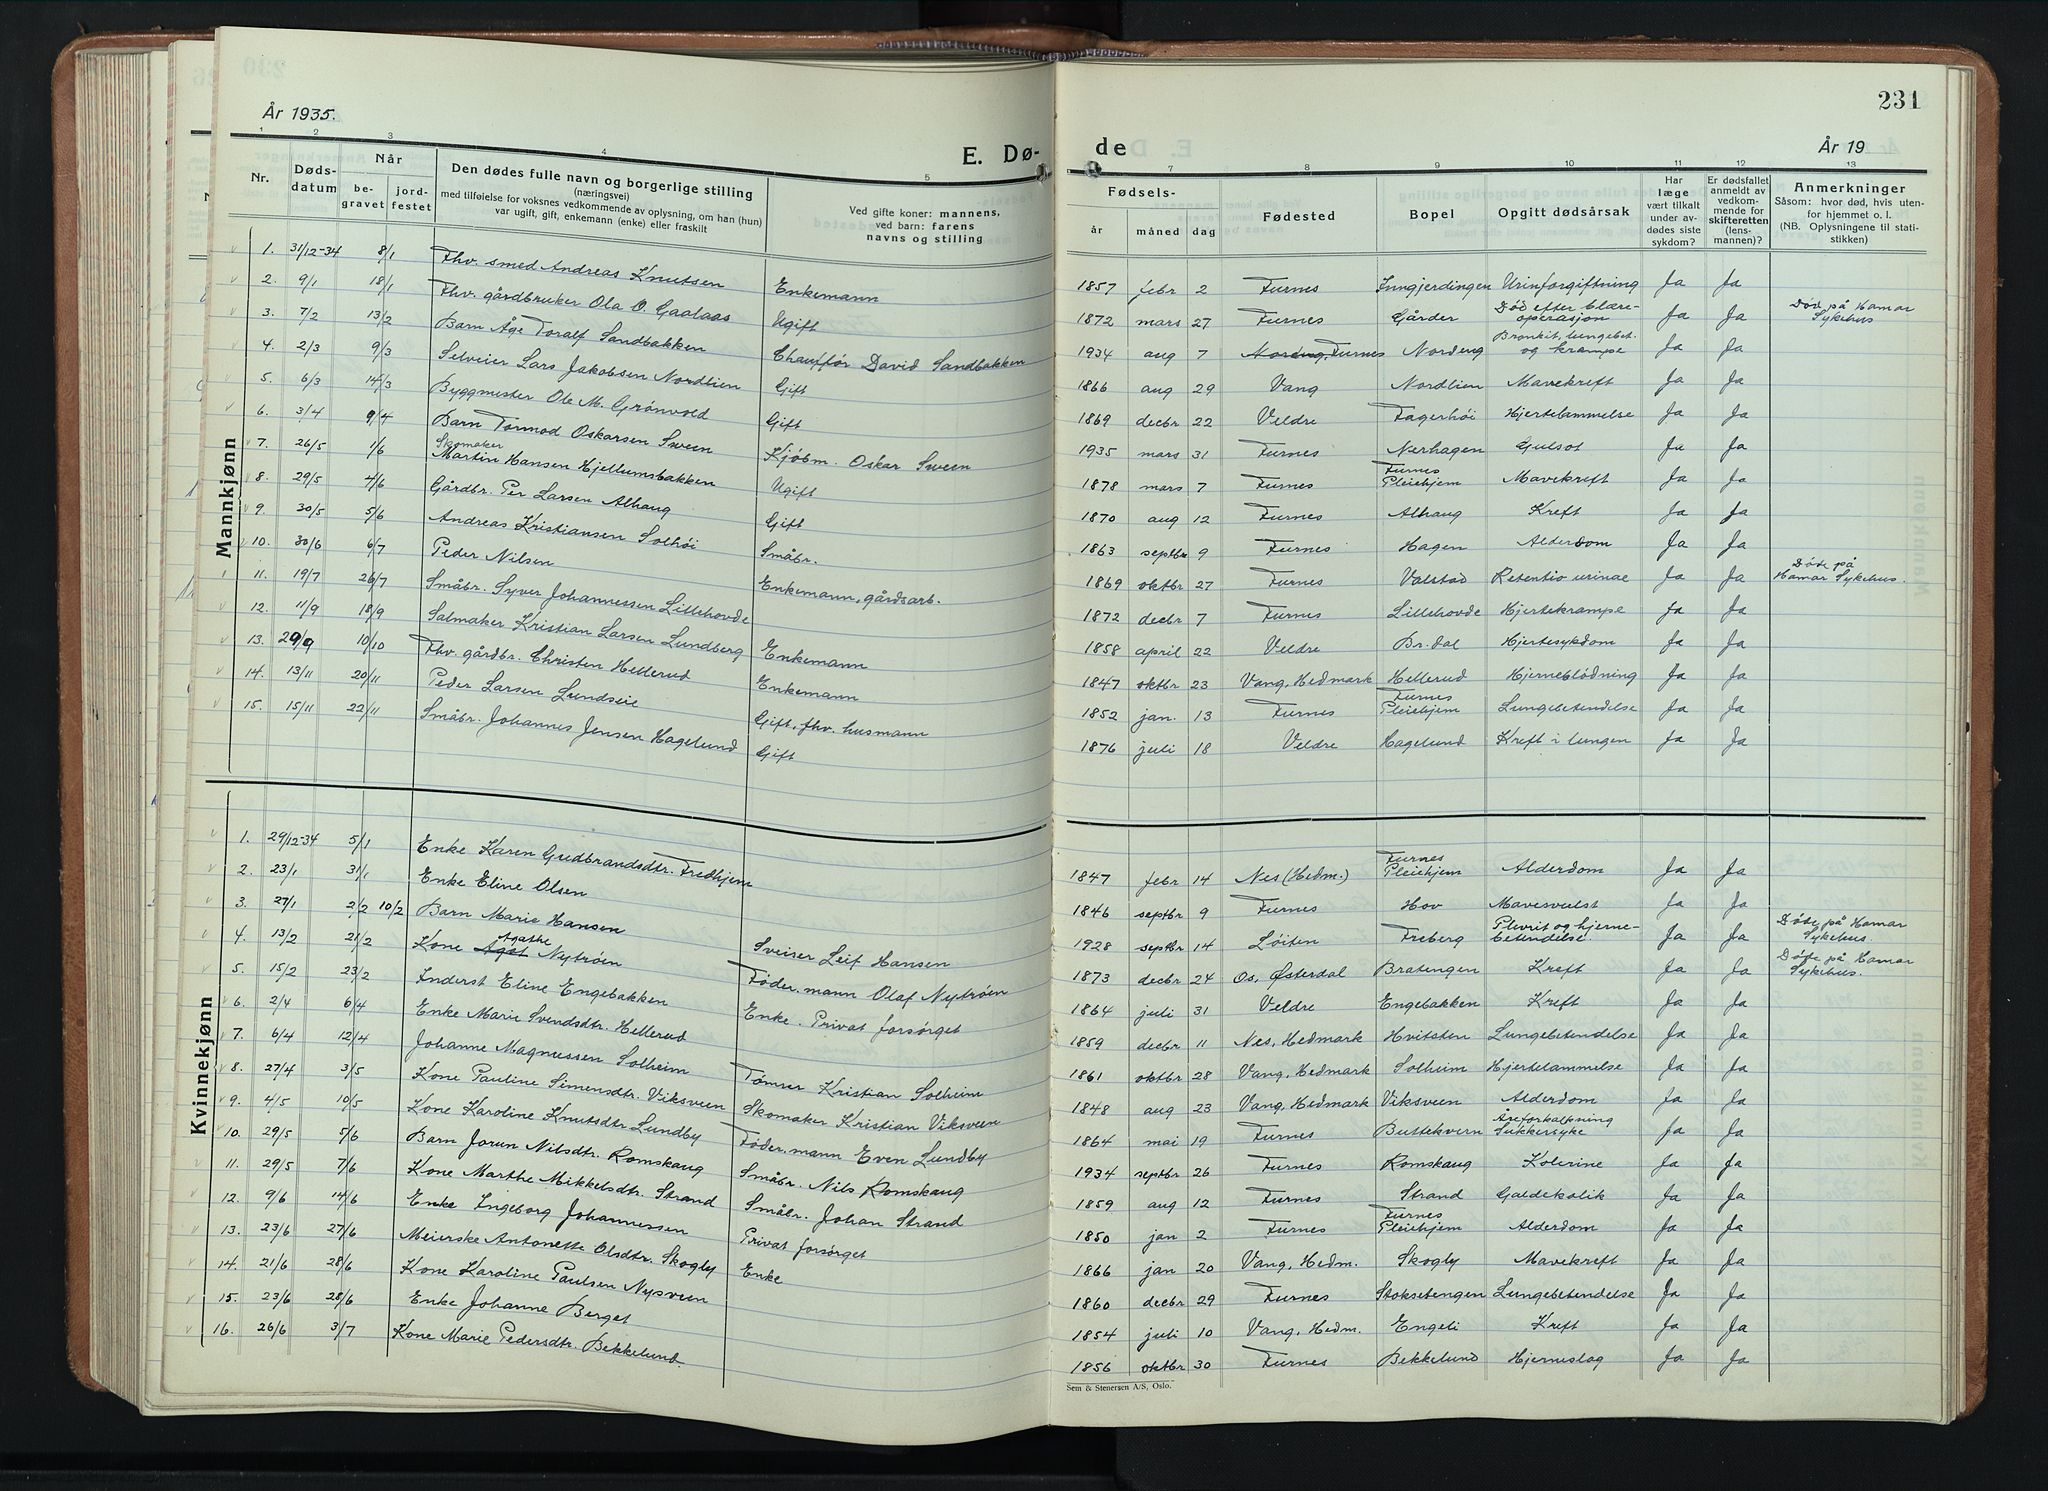 År 1935.
231
År 19
E. Dø-
de
1 2 3 4 5
7 8 9 10 11 12 13
Nr.
Døds-
datum
Når
be-
gravet
jord-
festet
Den dødes fulle navn og borgerlige stilling
(næringsvei)
med tilføielse for voksnes vedkommende av oplysning, om han (hun)
var ugift, gift, enkemann (enke) eller fraskilt
Ved gifte koner: mannens,
ved barn: farens
navns og stilling
Fødsels-
år måned dag
Fødested
Bopel
Opgitt dødsårsak
Har
læge
vært tilkalt
under av-
dødes siste
sykdom?
Er dødsfallet
anmeldt av
vedkom-
mende for
skifteretten
(lens-
mannen)?
Anmerkninger
Såsom: hvor død, hvis uten-
for hjemmet o. l.
(NB. Oplysningene til stati-
stikken)
Mannkjønn
1. 31/12-34 8/1 Fhv. smed Andreas Knutsen Enkemann 1857 febr 2 Furnes Inngjerdingen Urinforgiftning Ja Ja
2. 9/1 18/1 Fhv. gårdbruker Ola O. Gaalaas Ugift 1872 mars 27 Furnes Gårder Død efter blære-operasjon Ja Ja Død på Hamar Sykehus
3. 7/2 13/2 Barn Åge Toralf Sandbakken Chauffør David Sandbakken 1934 aug 7 Nordeng, Furnes Nordeng Bronkit, lungebet. og krampe Ja Ja
4. 2/3 9/3 Selveier Lars Jakobsen Nordlien Gift 1866 aug 29 Vang Nordlien Mavekreft Ja Ja
5. 6/3 14/3 Byggmester Ole M. Grønvold Gift 1869 decbr 22 Veldre Fagerhøi Hjertelammelse Ja Ja
6. 3/4 9/4 Barn Tormod Oskarsen Sveen Kjøbm. Oskar Sveen 1935 mars 31 Furnes Nerhagen Gulsot Ja Ja
7. 26/5 1/6 Skomaker Martin Hansen Hjellumsbakken Ugift 1878 mars 7 Furnes Furnes Pleiehjem Mavekreft Ja Ja
8. 29/5 4/6 Gårdbr. Per Larsen Alhaug Gift 1870 aug 12 Furnes Alhaug Kreft Ja Ja
9. 30/5 5/6 Andreas Kristiansen Solhøi Småbr. 1863 septbr 9 Furnes Hagen Alderdom Ja Ja
10. 30/6 6/7 Peder Nilsen Enkemann, gårdsarb. 1869 oktbr 27 Furnes Valstad Retentio urinae Ja Ja Døde på Hamar Sykehus.
11. 19/7 26/7 Småbr. Syver Johannessen Lillehovde 1872 decbr 7 Furnes Lillehovde Hjertekrampe Ja Ja
12. 11/9 18/9 Salmaker Kristian Larsen Lundberg Enkemann 1858 april 22 Veldre Br.dal Hjertesykdom Ja Ja
13. 29/9 10/10 Fhv. gårdbr. Christen Hellerud Enkemann 1847 oktbr 23 Vang, Hedmark Hellerud Hjerneblødning Ja Ja
14. 13/11 20/11 Peder Larsen Lundseie Gift, fhv. husmann 1852 jan. 13 Furnes Furnes Pleiehjem Lungebetendelse Ja Ja
15. 15/11 22/11 Småbr. Johannes Jensen Hagelund Gift 1876 juli 18 Veldre Hagelund Kreft i lungen Ja Ja
Kvinnekjønn
1. 29/12-34 5/1 Enke Karen Gudbrandsdtr. Fredhjem 1847 febr 14 Nes (Hedm.) Furnes Pleiehjem Alderdom Ja Ja
2. 23/1 31/1 Enke Eline Olsen 1846 septbr 9 Furnes Hov Mavesvulst Ja Ja
3. 27/1 2/2 10/2 Barn Marie Hansen Sveiser Leif Hansen 1928 septbr 14 Løiten Freberg Plevrit og hjerne-betendelse. Ja Ja Døde på Hamar Sykehus.
4. 13/2 21/2 Kone Agot Agathe Nytrøen Føder.mann Olaf Nytrøen 1873 decbr 24 Os, Østerdal Bratengen Kreft Ja Ja Døde på Hamar Sykehus.
5. 15/2 23/2 Inderst Eline Engebakken Enke. Privat forsørget 1864 juli 31 Veldre Engebakken Kreft Ja Ja
6. 2/4 6/4 Enke Marie Svendsdtr. Hellerud 1859 decbr 11 Nes, Hedmark Hvitsten Lungebetendelse Ja Ja
7. 6/4 12/4 Johanne Magnussen Solheim Tømrer Kristian Solheim 1861 oktbr 28 Vang, Hedmark Solheim Hjertelammelse Ja Ja
8. 27/4 3/5 Kone Pauline Simensdtr. Viksveen Skomaker Kristian Viksveen 1848 aug 23 Vang, Hedmark Viksveen Alderdom Ja Ja
9. 4/5 10/5 Kone Karoline Knutsdtr Lundby Føder.mann Even Lundby 1864 mai 19 Furnes Buttekvern Åreforkalkning Sukkersyke Ja Ja
10. 29/5 5/6 Barn Jorun Nilsdtr. Romskaug Småbr. Nils Romskaug 1934 septbr 26 Furnes Romskaug Kolerine Ja Ja
11. 29/5 7/6 Kone Marthe Mikkelsdtr. Strand Småbr. Johan Strand 1859 aug 12 Furnes Strand Galdekolik Ja Ja
12. 9/6 14/6 Enke Ingeborg Johannessen Privat forsørget 1850 jan 2 Furnes Furnes Pleiehjem Alderdom Ja Ja
13. 23/6 27/6 Meierske Antonette Olsdtr. Skogly Enke 1866 jan 20 Vang, Hedm. Skogly Mavekreft Ja Ja
14. 21/6 28/6 Kone Karoline Paulsen Nysveen 1860 decbr 29 Furnes Stoksetengen Lungebetendelse Ja Ja
15. 23/6 28/6 Enke Johanne Berget 1854 juli 10 Vang, Hedm. Engeli Kreft Ja Ja
16. 26/6 3/7 Kone Marie Pedersdtr. Bekkelund. 1856 oktbr 30 Furnes Bekkelund Hjerneslag Ja Ja
Sem & Stenersen A/S, Oslo.